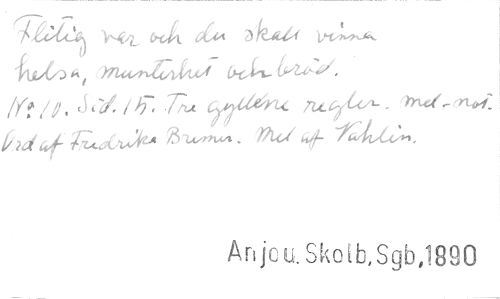 Flitig var och du skall vinna
helsa, munterhet och bröd.
No 10. Sid. 15. Tre gyllene regler. mel-not.
Ord af Fredrika Bremer. Mel af Vahlin.
Anjou. Skolb, Sgb, 1890